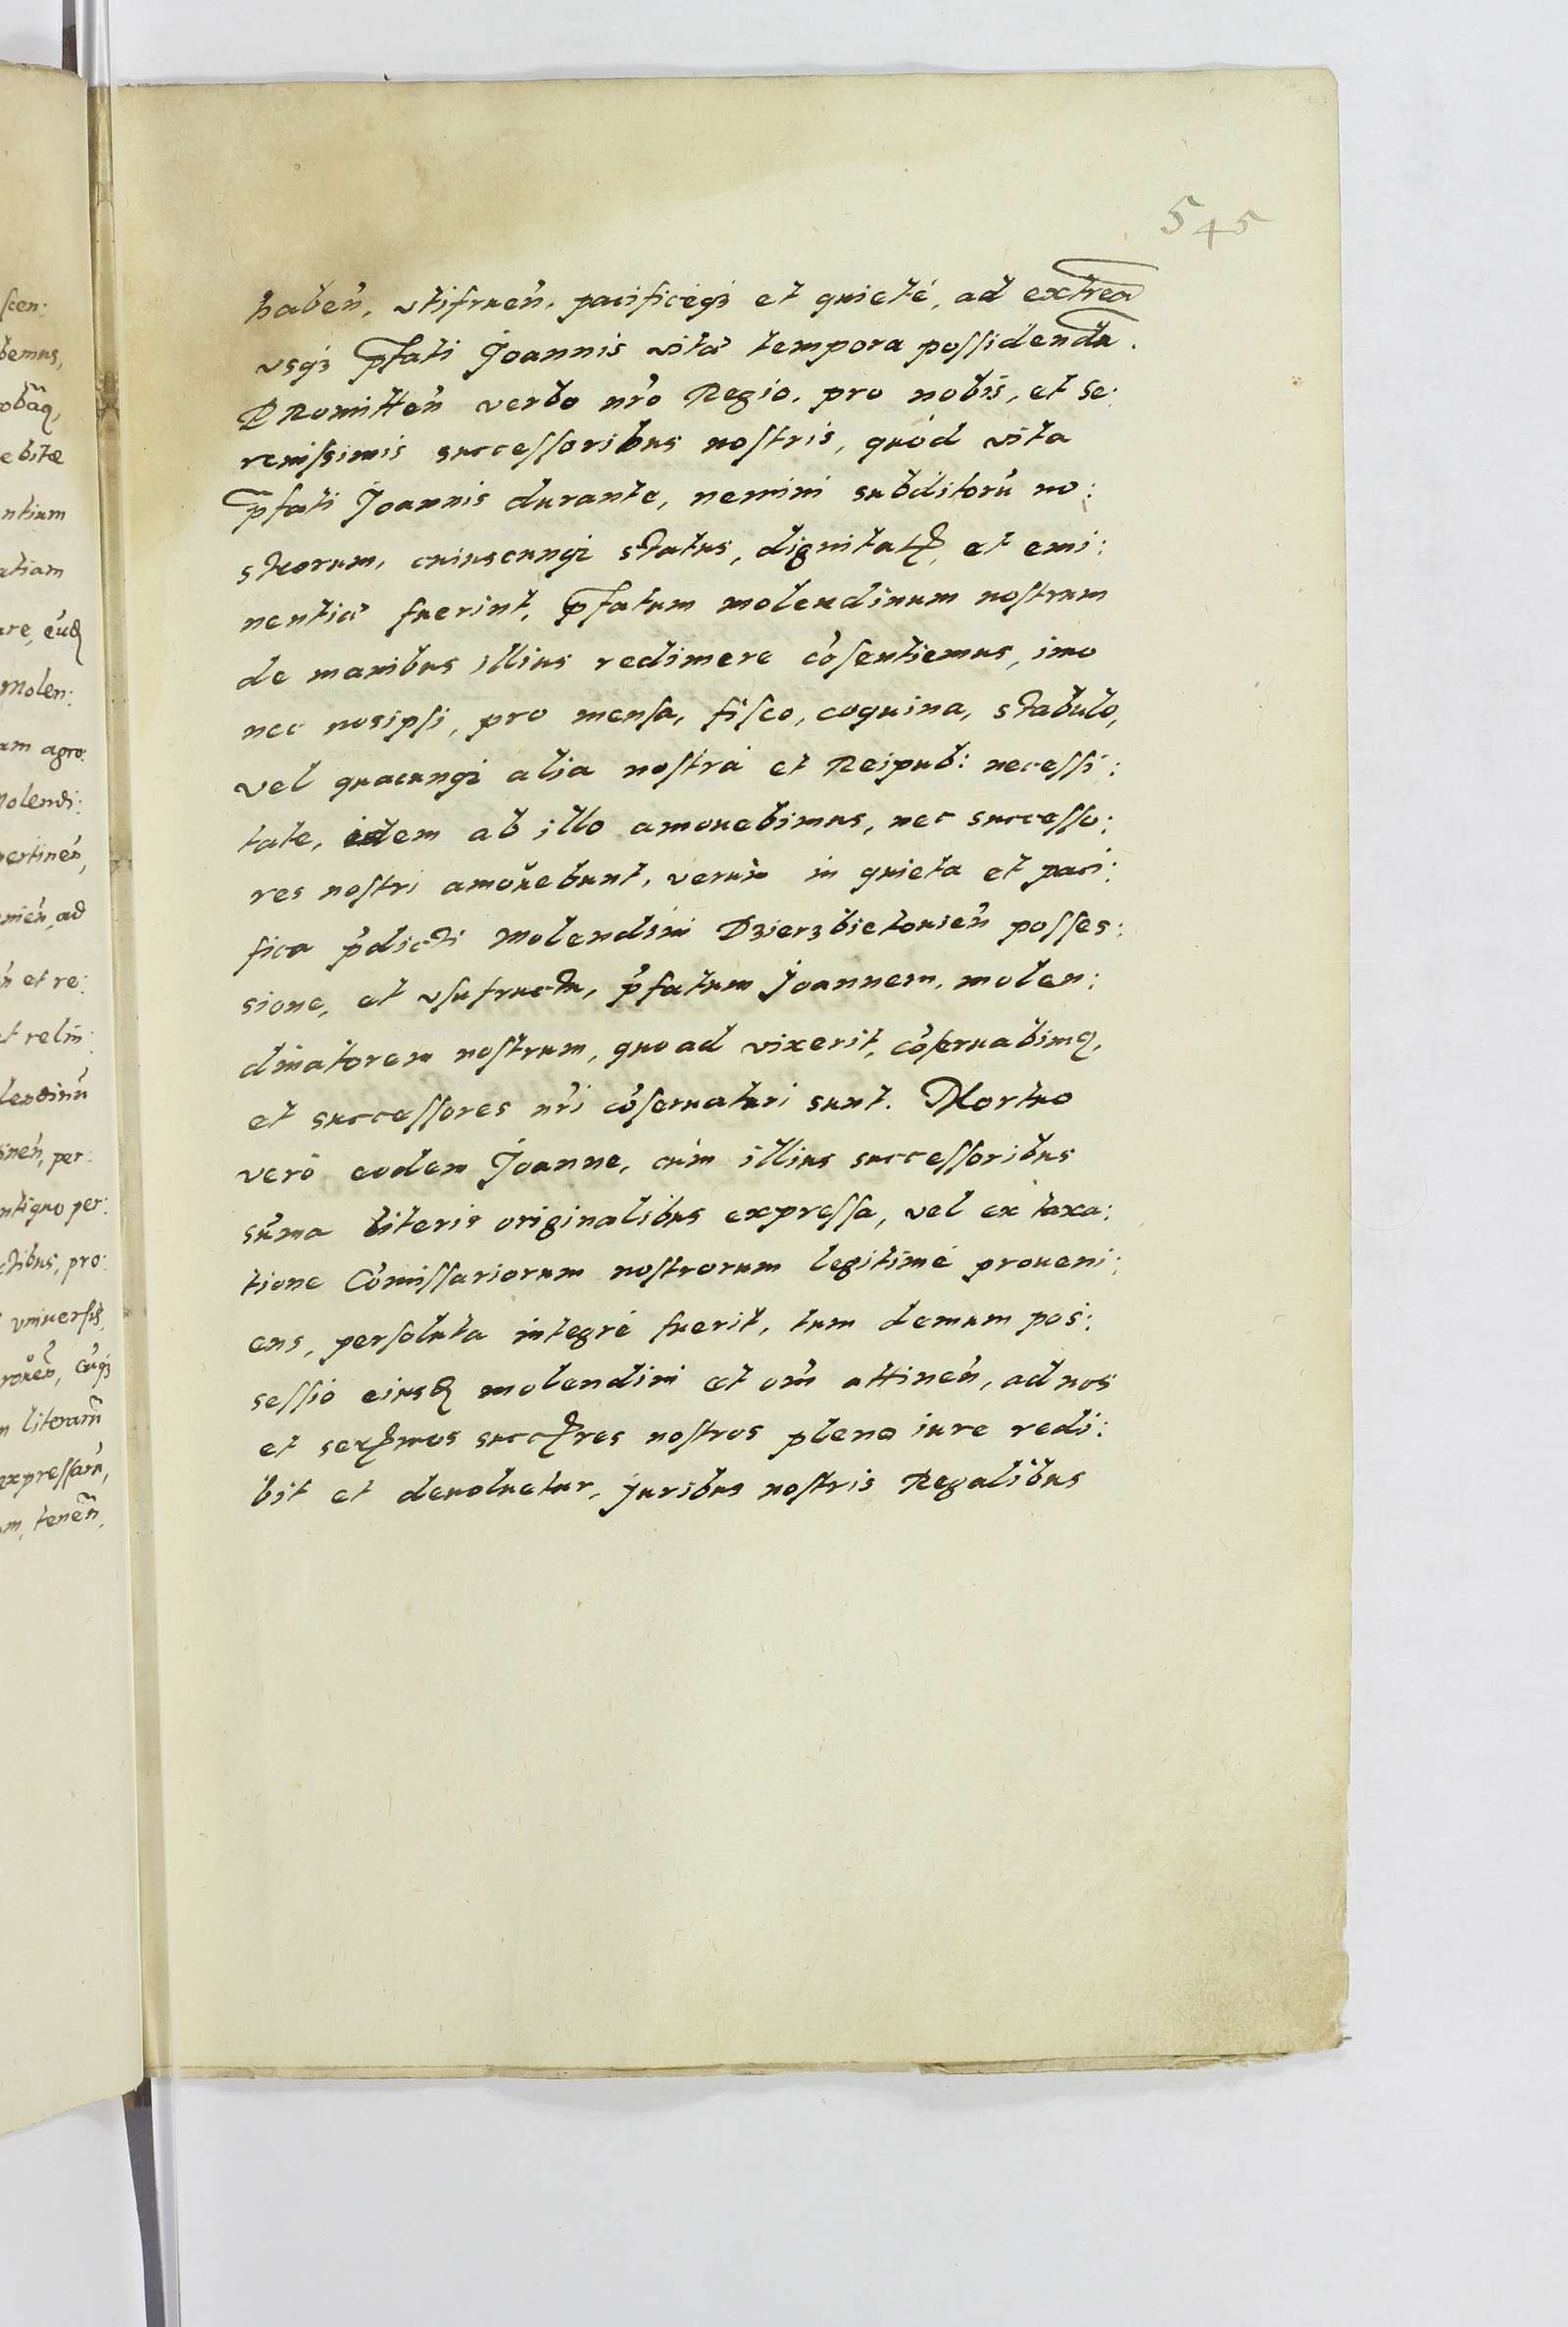 545
haben̄, vtifruen̄, pacificéq₃ et quieté, ad extrea
vsq₃ p̄fati Joannis vitæ tempora possidendū.
PRomitten̄ verbo nr̄o Regio, pro nobis, et Se:
renissimis successoribus nostris, quòd vita
p̄fati Joannis durante, nemini subditorū no:
strorum, cuiuscunq₃ status, dignitat₃, et emi:
nentiæ fuerint, p̄fatum molendinum nostrum
de manibus illius redimere cōsentiemus, imo
nec nosipsi, pro mensa, fisco, coquina, stabulo,
vel quacunq₃ alia nostrá et Reipub: necessi:
tate, idem ab illo amouebimus, nec successo:
res nostri amouebunt, verum in quieta et paci:
fica p̄dicti Molendini Dzierzbietouien̄ posses:
sione, et vsufructu, p̄fatum Joannem, molen:
dinatorem nostrum, quoad vixerit, cōseruabimꝰ,
et successores nr̄i cōseruaturi sunt. Mortuo
verò eodem Joanne, cum illius successoribus
sūma literis originalibus expressa, vel ex taxa:
tione Cōmissariorum nostrorum legitimé proueni:
ens, persoluta integré fuerit, tum demum pos:
sessio eiusd₃ molendini et om̄ attinen̄, ad nos
et ser₃mos succ₃res nostros pleno iure redi:
bit et deuoluetur, Juribus nostris Regalibus
scen:
bemus,
ebitæ
ntium
atiam
Molen:
am agro:
Molendi:
pertinen̄,
ad
et re:
et relin:
lendinū
per:
ntiquo per:
ctibus, pro:
vniuersis,
literarū
expressarū,
m, tenen̄,